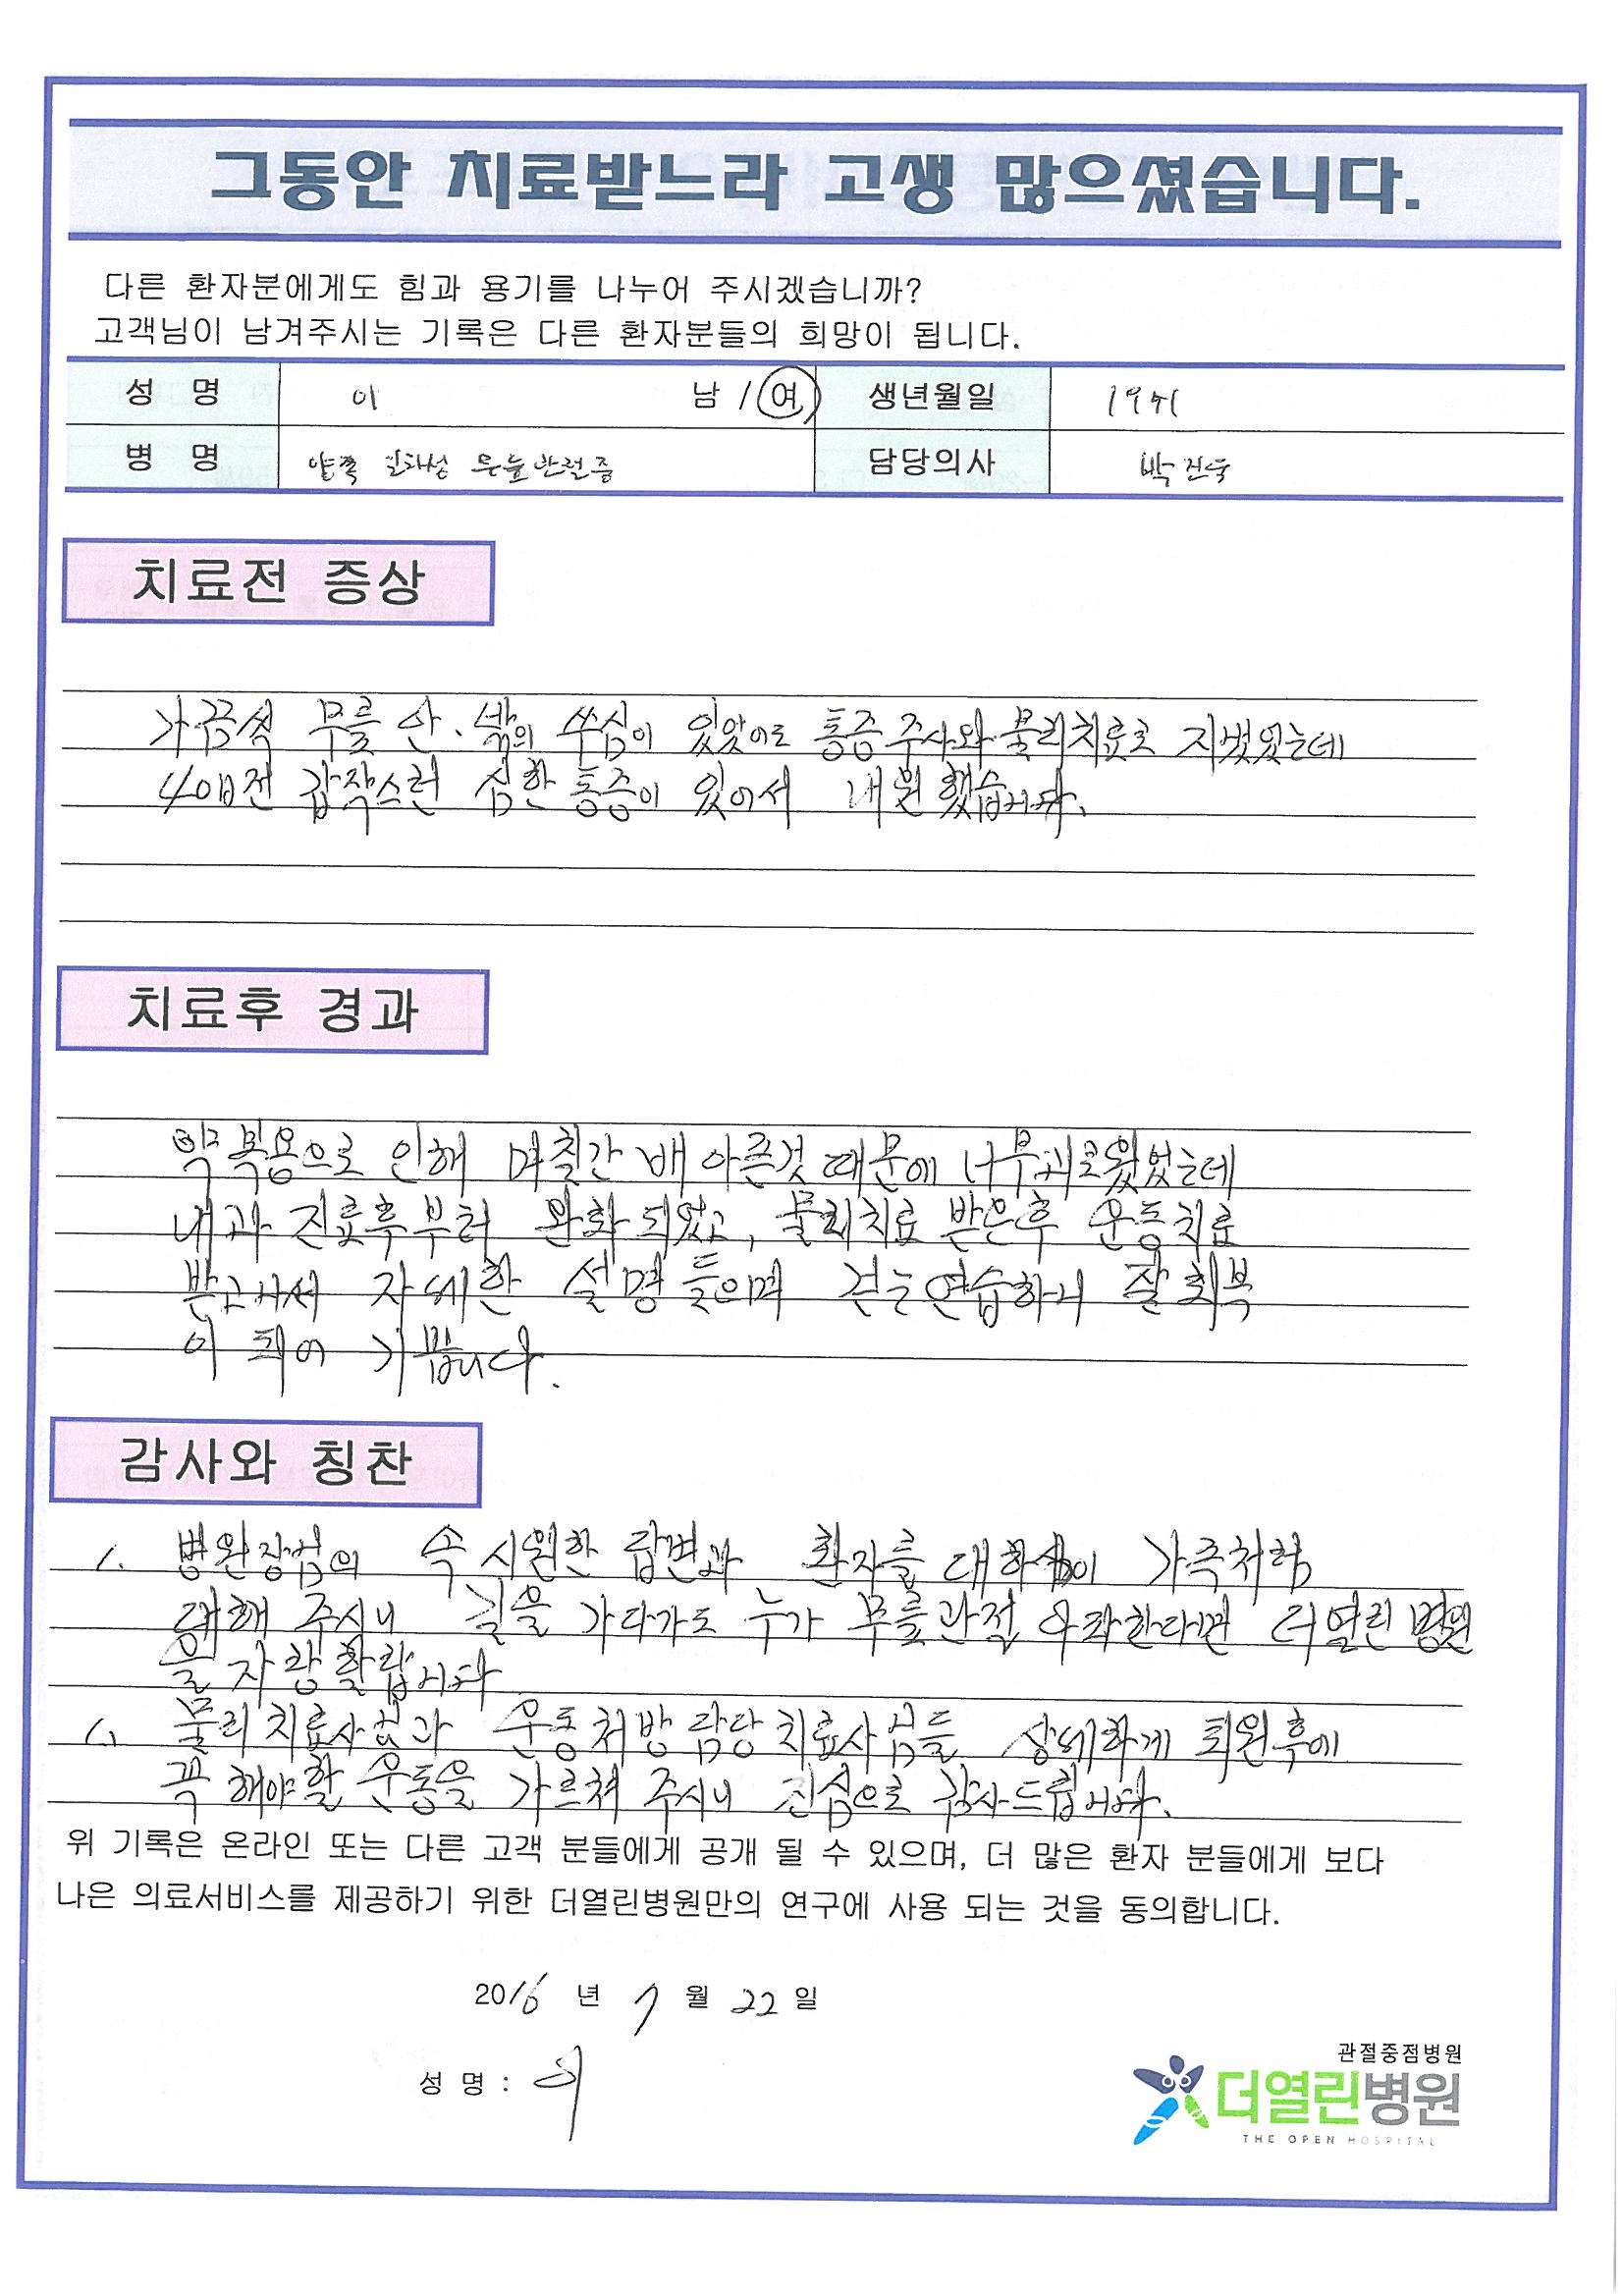 그동안 치료받느라 고생 많으셨습니다.
다른 환자분에게도 힘과 용기를 나누어 주시겠습니까?
고객님이 남겨주시는 기록은 다른 환자분들의 희망이 됩니다.
성 명 이 남 / 여 생년월일 1941
병 명 양쪽 퇴화성 무릎관절증 담당의사 박진욱
치료전 증상
가끔식 무릎 안.밖의 쑤심이 있었어도 통증주사와 물리치료로 지냈었는데
4일전 갑작스런 심한 통증이 있어서 내원했습니다.
치료후 경과
약복용으로 인해 며칠간 배 아픈것 때문에 너무괴로웠었는데
내과 진료후부터 완화되었고, 물리치료 받은후 운동치료
받고나서 자세한 설명 들으며 걷는연습하니 잘 회복
이 되어 기쁩니다.
감사와 칭찬
1. 병원장님의 속 시원한 답변과 환자를 대하심이 가족처럼
대해 주시니 길을 가다가도 누가 무릎관절 우려한다면 더열린병원
을 자랑할랍니다
물리치료사님과 운동처방 담당치료사님들 상세하게 퇴원후에
꼭 해야할 운동을 가르쳐 주시니 진심으로 감사드립니다.
위 기록은 온라인 또는 다른 고객 분들에게 공개 될 수 있으며, 더 많은 환자 분들에게 보다
나은 의료서비스를 제공하기 위한 더열린병원만의 연구에 사용 되는 것을 동의합니다.
2016 년 7 월 22 일
성 명 : 이
관절중점병원
더열린병원
THE OPEN HOSPITAL